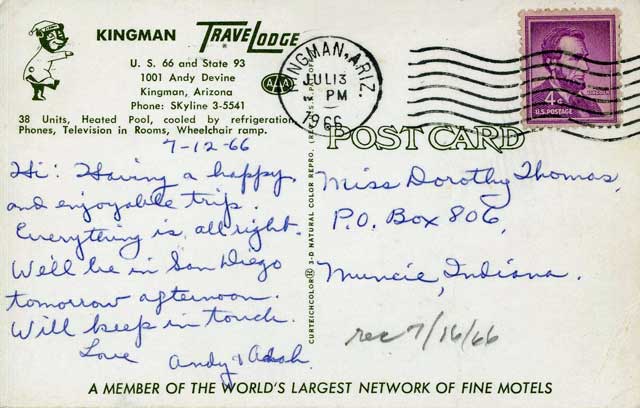 KINGMAN TRAVELODGE
U. S. 66 and State 93
1001 Andy Devine
Kingman, Arizona
Phone: SKyline 3-5541
AAA
38 Units, Heated Pool, cooled by refrigeration
Phones, Television in Rooms, Wheelchair ramp.
KINGMAN, ARIZ.
JUL 13
PM
1966
4¢
U.S. POSTAGE
POST CARD
7-12-66
Hi: Having a happy
and enjoyable trip.
Everything is all right.
We'll be in San Diego
tomorrow afternoon.
Will keep in touch.
Love Andy & Adah.
CURTEICHCOLOR® 3-D NATURAL COLOR REPRO.
Miss Dorothy Thomas,
P.O. Box 806,
Muncie, Indiana.
rec 7/16/66
A MEMBER OF THE WORLD'S LARGEST NETWORK OF FINE MOTELS